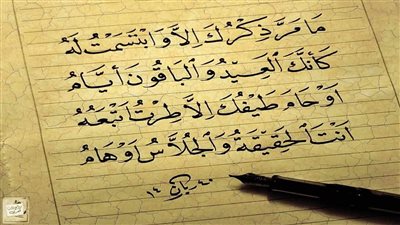 مَا مَرَّ ذِكْرُكَ إلاَّ وَابْتَسَمْتُ لَهُ
كَأنَّكَ العِيْدُ وَالبَاقُونَ أيَّامُ
أوْ حَامَ طَيْفُكَ إلاَّ طِرْتُ أتْبَعُهُ
أنْتَ الْحَقِيقَةُ وَالْجُلاَّسُ أوْهَامُ